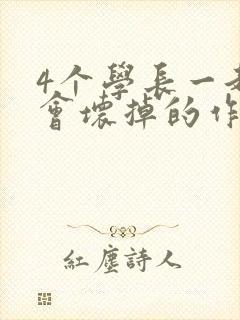 4个學長一
會壞掉的作
紅塵詩人